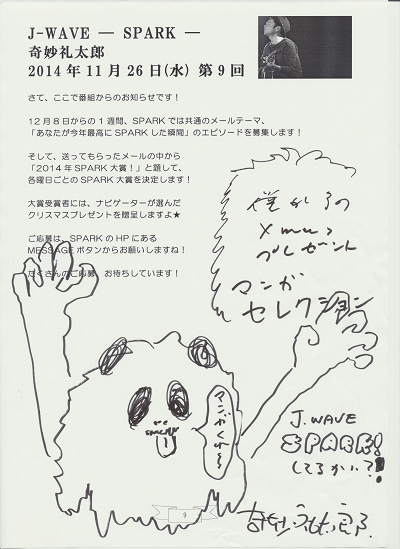 J-WAVE ― SPARK ―
奇妙礼太郎
2014年11月26日(水) 第9回
さて、ここで番組からのお知らせです!
12月8日からの1週間、SPARKでは共通のメールテーマ、
「あなたが今年最高にSPARKした瞬間」のエピソードを募集します!
そして、送ってもらったメールの中から
「2014年SPARK大賞!」と題して、
各曜日ごとのSPARK大賞を決定します!
大賞受賞者には、ナビゲーターが選んだ
クリスマスプレゼントを贈呈しますよ★
ご応募は、SPARKのHPにある
MESSAGEボタンからお願いしますね!
たくさんのご応募 お待ちしています!
僕からの
Xmas
プレゼント
マンガ
セレクション
マンガくれ〜
SPARK
J.WAVE
SPARK!
してるかい?!
9
奇妙礼太郎